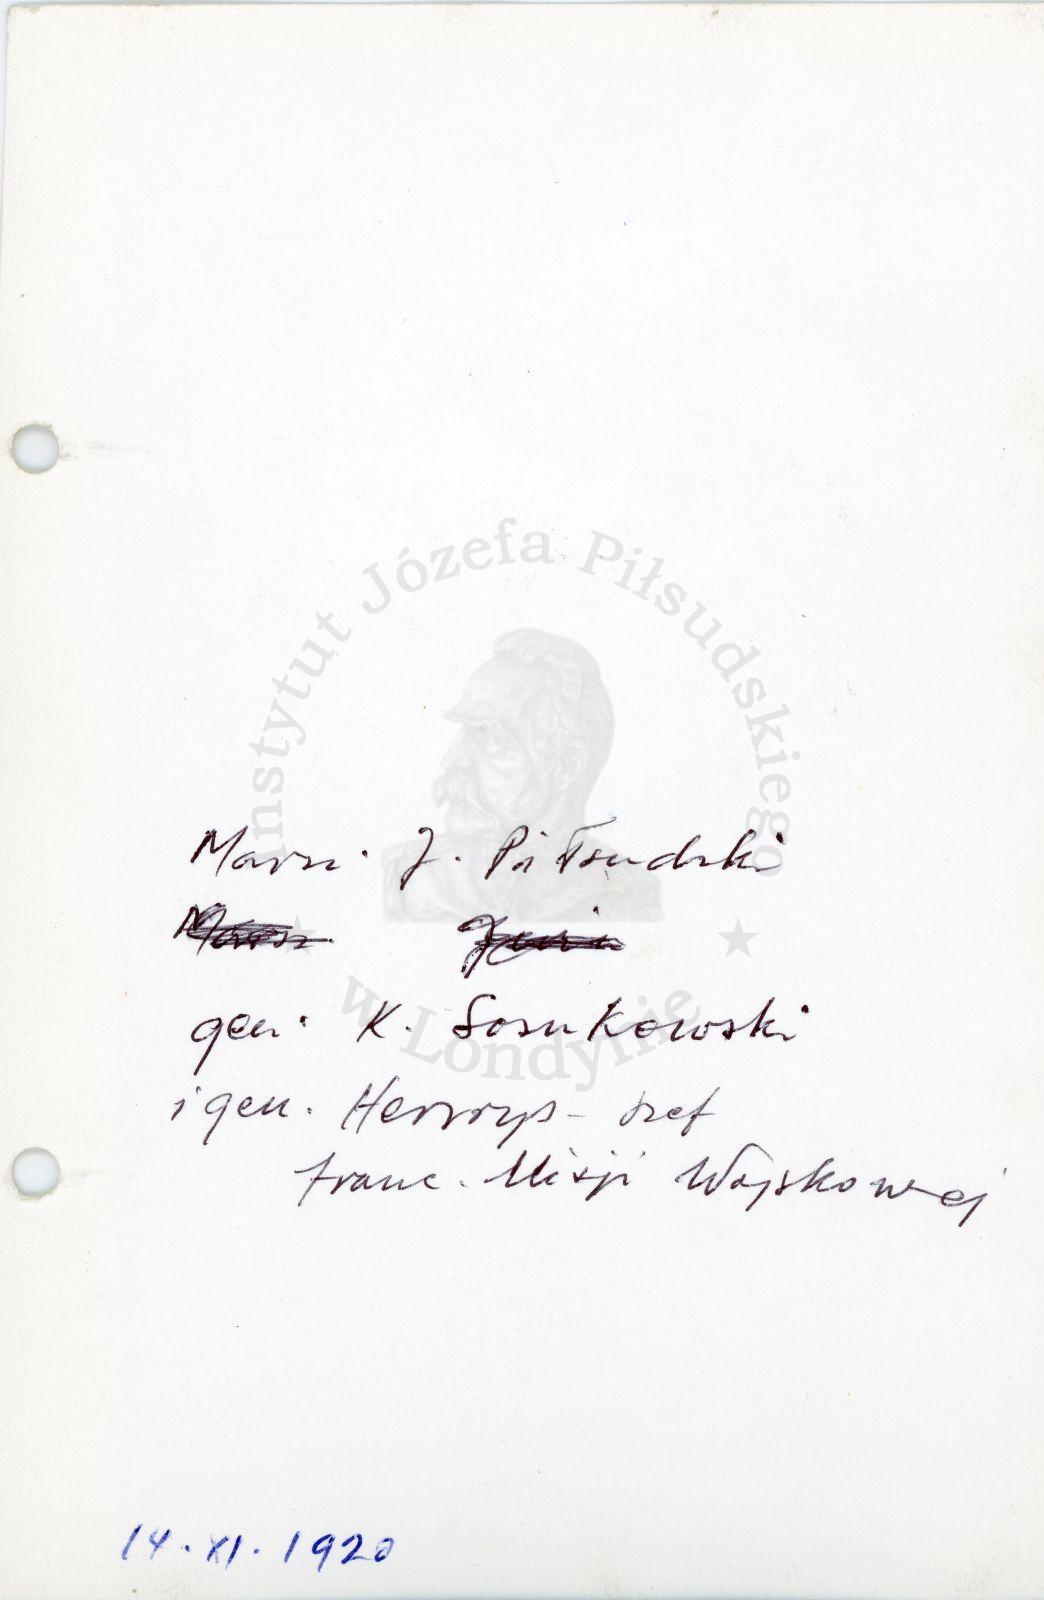 Instytut Józefa Piłsudskiego
Marsz. J. Piłsudski
gen. K. Sosnkowski
w Londynie
i gen. Henrys - szef
franc. Misji Wojskowej
14.XI.1920